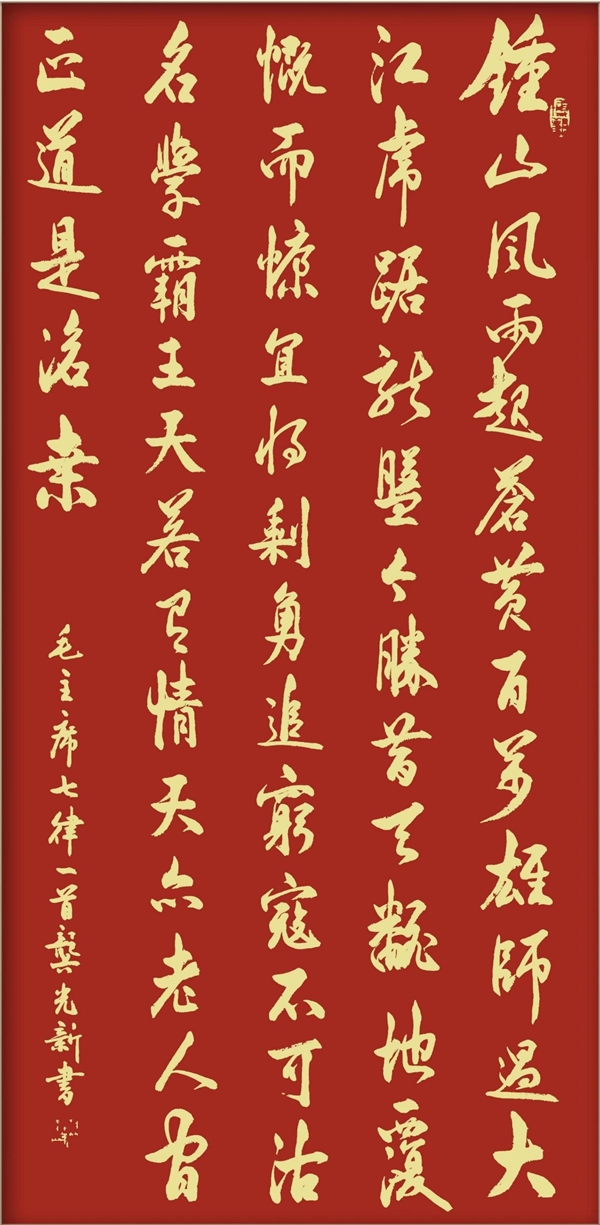 鍾山風雨起蒼黄百萬雄師過大
江虎踞龍盤今勝昔天翻地覆
慨而慷宜將剩勇追窮寇不可沽
名學霸王天若有情天亦老人間
正道是滄桑
毛主席七律一首龔光新書